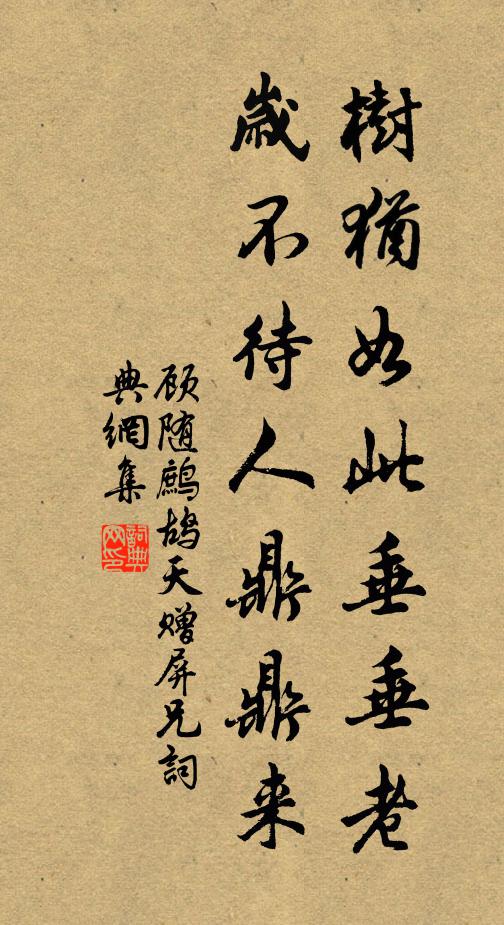 樹猶如此垂垂老
歲不待人鼎鼎来
顾随鷓鴣天赠屏兄詞
典網集
詞典網印